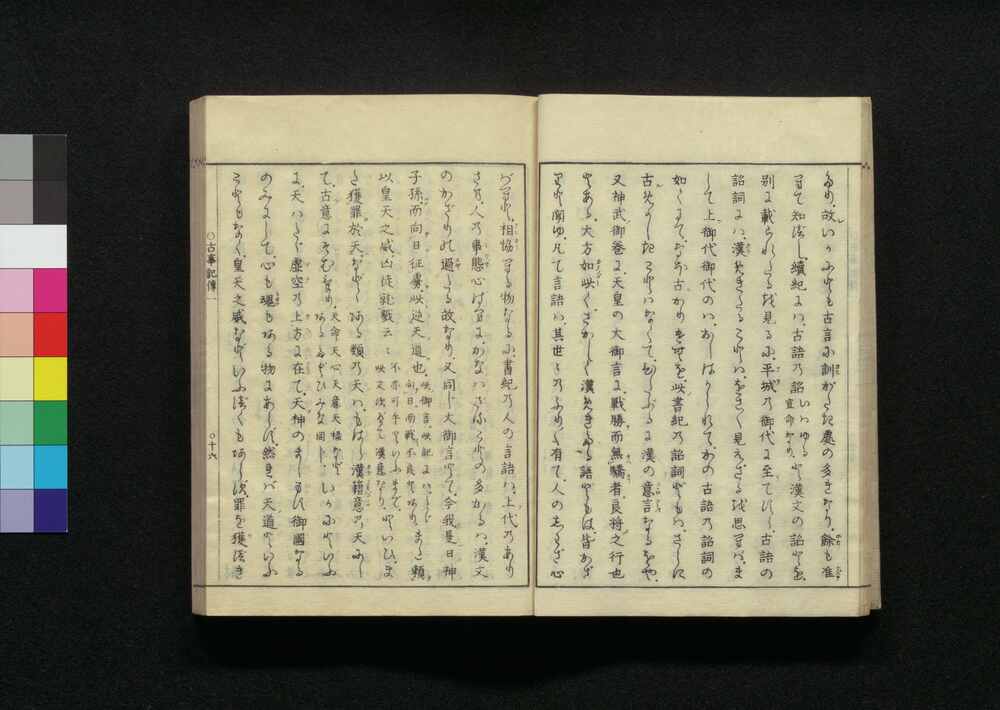 るめり、故いかにも古言に訓がたき處の多きなり、餘も准
へて知べし、續紀には、古語の詔いはゆる宣命なり、と漢文の詔とを、
別に載られたるを見るに、平城の御代に至てすら、古語の
詔詞には、漢めきたることは、をさをさ見えざるを思へば、ま
して上御代御代のは、おしはかられて、かの古語の詔詞の
如くにて、なほ古かりけむを、此書紀の詔詞どもは、さしも
古めかしきことはなくて、ひたぶるに漢の意言なるをや、
又神武御卷に、天皇の大御言に、戰勝而無驕者良將之行也
とある、大方如此くさかしく漢めきたる語どもは、皆かざ
りと聞ゆ、凡て言語は其世々のふりふり有て、人のしわざ心
ばへと、相協へる物なるに、書紀の人の言語は、上代のあり
さま、人の事態心ばへに、かなはざることの多かるは、漢文
のかざりの過たる故なり、又同じ大御言とて、今我是日神
子孫、而向日征虜、此逆天道也、
以皇天之威、凶徒就戮云々
た獲罪於天、などある類の天は、もはら漢籍意の天にし
て、古意にそむけり、天命天心天意天祿などあるたぐひみな同じ、いかにといふ
に、天はたゞ虚空の上方に在て、天神のまします御國なる
のみにして、心も魂もある物にあらず、然れば天道といふ
こともなく、皇天之威などいふべくもあらず、罪を獲べき
○古事記傳一
○十六